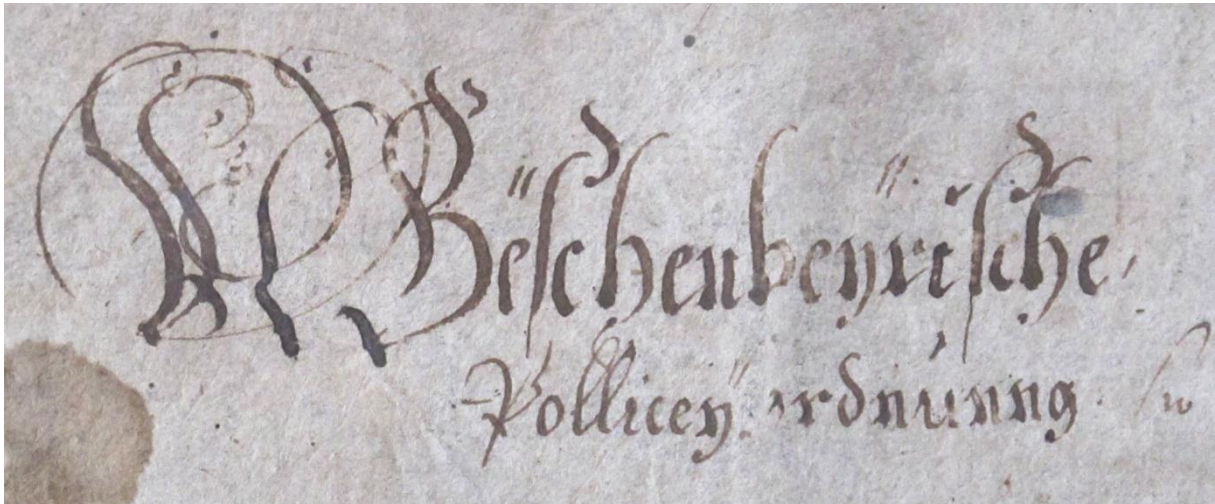 Wëschenbeÿrische
Polliceÿ ordnúnng